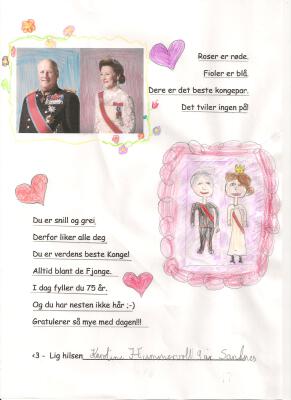 Roser er røde.
Fioler er blå.
Dere er det beste kongepar.
Det tviler ingen på!
Du er snill og grei
Derfor liker alle deg
Du er verdens beste Konge!
Alltid blant de Fjonge.
I dag fyller du 75 år.
Og du har nesten ikke hår ;-)
Gratulerer så mye med dagen!!!
<3 - Lig hilsen Karoline Hummervoll 9 år Sandnes